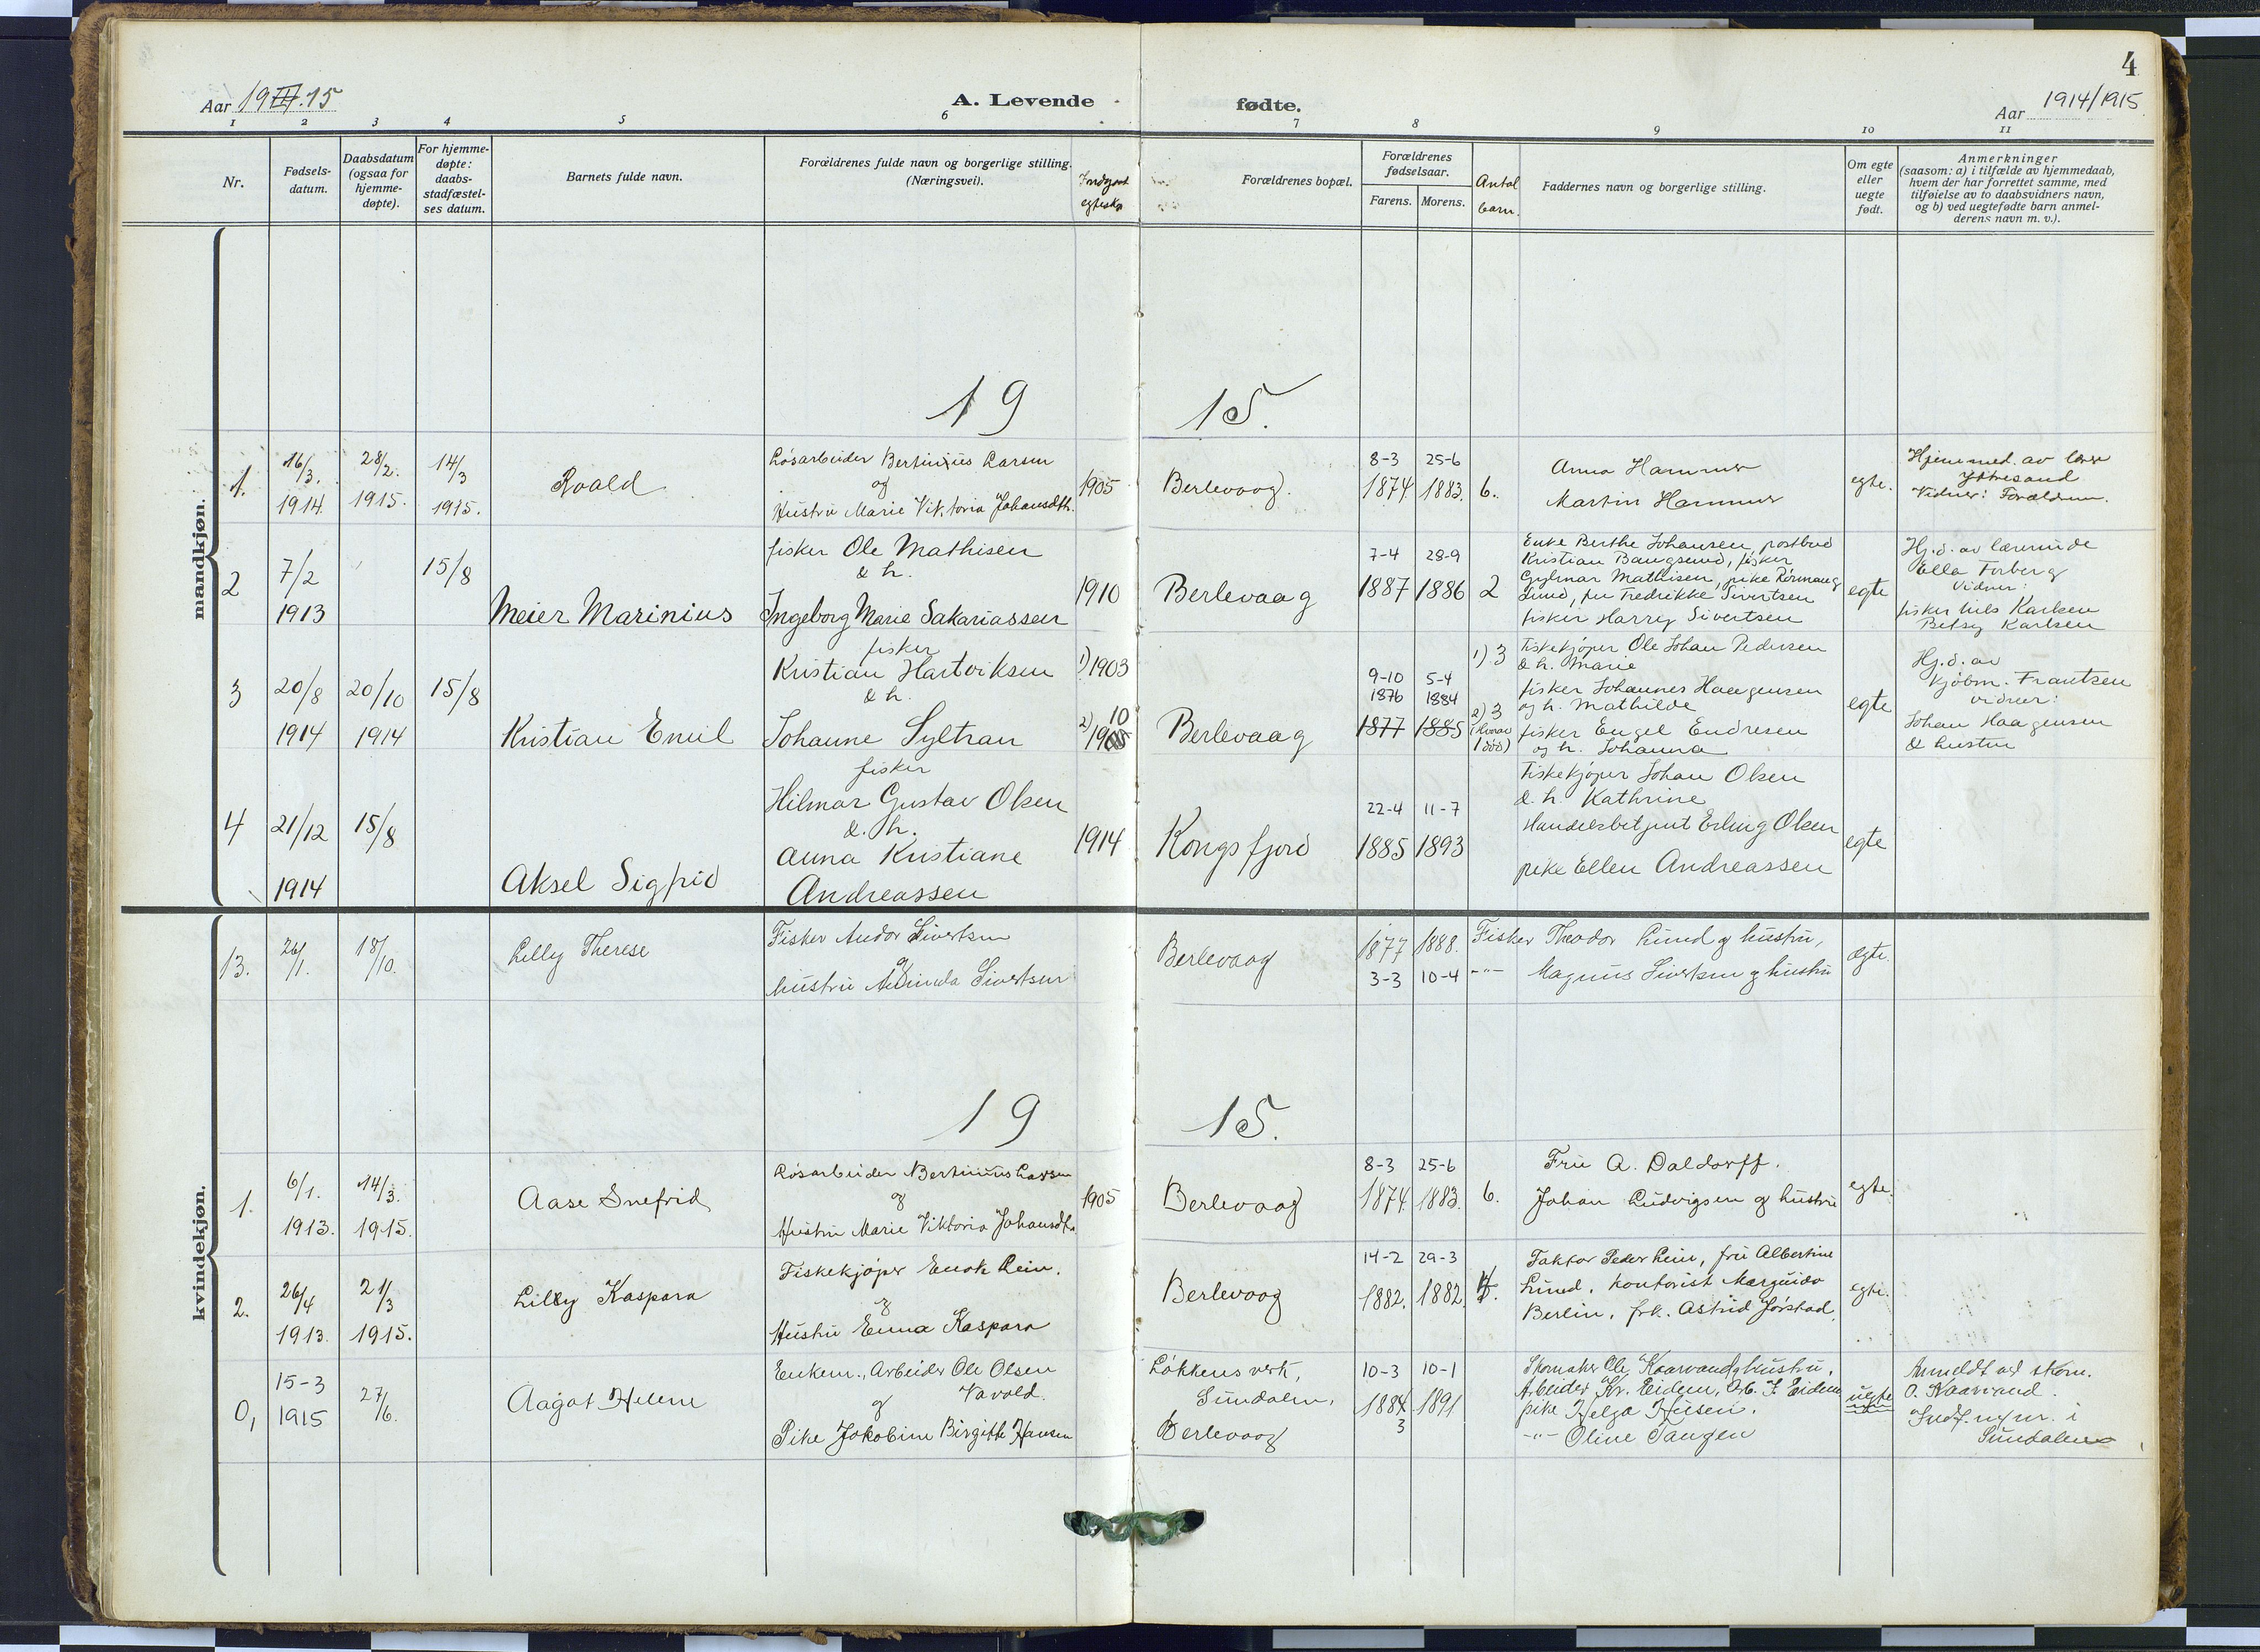 4
Aar 19III.15
A. Levende
fødte.
Aar 1914/1915.
1 2 3 4 5 6 7 8 9 10 11
Nr.
Fødsels-
datum.
Daabsdatum
(ogsaa for
hjemme-
døpte).
For hjemme-
døpte:
daabs-
stadfæstel-
ses datum.
Barnets fulde navn.
Forældrenes fulde navn og borgerlige stilling.
(Næringsvei).
Indgaat
egtesk.
Forældrenes bopæl.
Forældrenes
fødselsaar.
Farens. Morens.
Antal
barn.
Faddernes navn og borgerlige stilling.
Om egte
eller
uegte
født.
Anmerkninger
(saasom: a) i tilfælde av hjemmedaab,
hvem der har forrettet samme, med
tilføielse av to daabsvidners navn,
og b) ved uegtefødte barn anmel-
derens navn m. v.).
mandkjøn.
19 15.
1. 16/3. 1914. 28/2. 1915. 14/3 1915.
Roald
Løsarbeider Bertinius Larsen
og
Hustru Marie Viktoria Johansdtr.
1905
Berlevaag.
8-3 25-6
1874. 1883. 6.
Anna Hammer
Martin Hammer
egte.
Hjemmed. av lærer
Yttresand
Vidner: Forældrene.
2 7/2 1913 15/8
Meier Marinius
fisker Ole Mathisen
& h.
Ingeborg Marie Sakariassen
1910
Berlevaag
7-4 28-9
1887 1886 2
Enke Berthe Johansen, postbud
Kristian Bangsund, fisker
Gylmar Mathisen, pike Rönnaug
Lund, fru Fredrikke Sivertsen
fisker Harry Sivertsen
egte
Hj.d. av lærerinde
Ella Forberg
Vidner:
fisker Nils Karlsen
Betsy Karlsen
3 20/8 1914 20/10 1914 15/8
Kristian Emil
fisker
Kristian Hartviksen
& h.
Johanne Syltran
1) 1903
2) 1910
Berlevaag
9-10 5-4
1876 1884
1877 1885
1) 3
2) 3
(hvorav
1 død)
Fiskekjøper Ole Johan Pedersen
& h. Marie
fisker Johannes Haagensen
og h. Mathilde
fisker Engel Endresen
og h. Johanna
egte
Hj.d. av
kjøbm. Frantzen
vidner:
Johan Haagensen
& hustru
4 21/12 1914 15/8
Aksel Sigfrid
fisker
Hilmar Gustav Olsen
& h.
Anna Kristiane
Andreassen
1914
Kongsfjord
22-4 11-7
1885 1893
Fiskekjøper Johan Olsen
& h. Kathrine
Handelsbetjent Erling Olsen
pike Ellen Andreassen
egte
kvindekjøn.
13. 26/1. 18/10.
Lilly Therese
Fisker Andor Sivertsen
og
hustru Sivertsen
Berlevaag
1877 1888.
3-3 10-4
Fisker Theodor Lund og hustru,
-"- Magnus Sivertsen og hustru
ægte.
19 15.
1. 6/1. 1913. 14/3. 1915.
Aase Snefrid
Løsarbeider Bertinius Larsen
og
Hustru Marie Viktoria Johansdtr.
1905
Berlevaag
8-3 25-6
1874. 1883. 6.
Fru A. Daldorff.
Johan Ludvigsen og hustru
egte.
2. 26/4 1913. 21/3 1915.
Lilly Kaspara
Fiskekjøper Enok Lein.
og
Hustru Emma Kaspara
Berlevaag
14-2 29-3
1882. 1882.
Faktor Peder Lein, fru Albertine
Lund, kontorist Marguido
Berlin, frk. Astrid Jørstad.
egte.
0, 15-3 1915 27/6.
Aagot Helene
Enkem., Arbeider Ole Olsen
og Vavold.
Pike Jakobine Birgitte Hansen
Løkkens verk,
Sundalen,
Berlevaag
10-3 10-1
1884 1891
3
Skomaker Ole Kaarvand og hustru,
Arbeider Kr. Eidem, Arb. J. Eidem
pike Helga Husen.
-"- Oline Tangen
uegte
Anmeldt ved skom.
O. Kaarvand.
Indf. u/nr. i
Sundalen